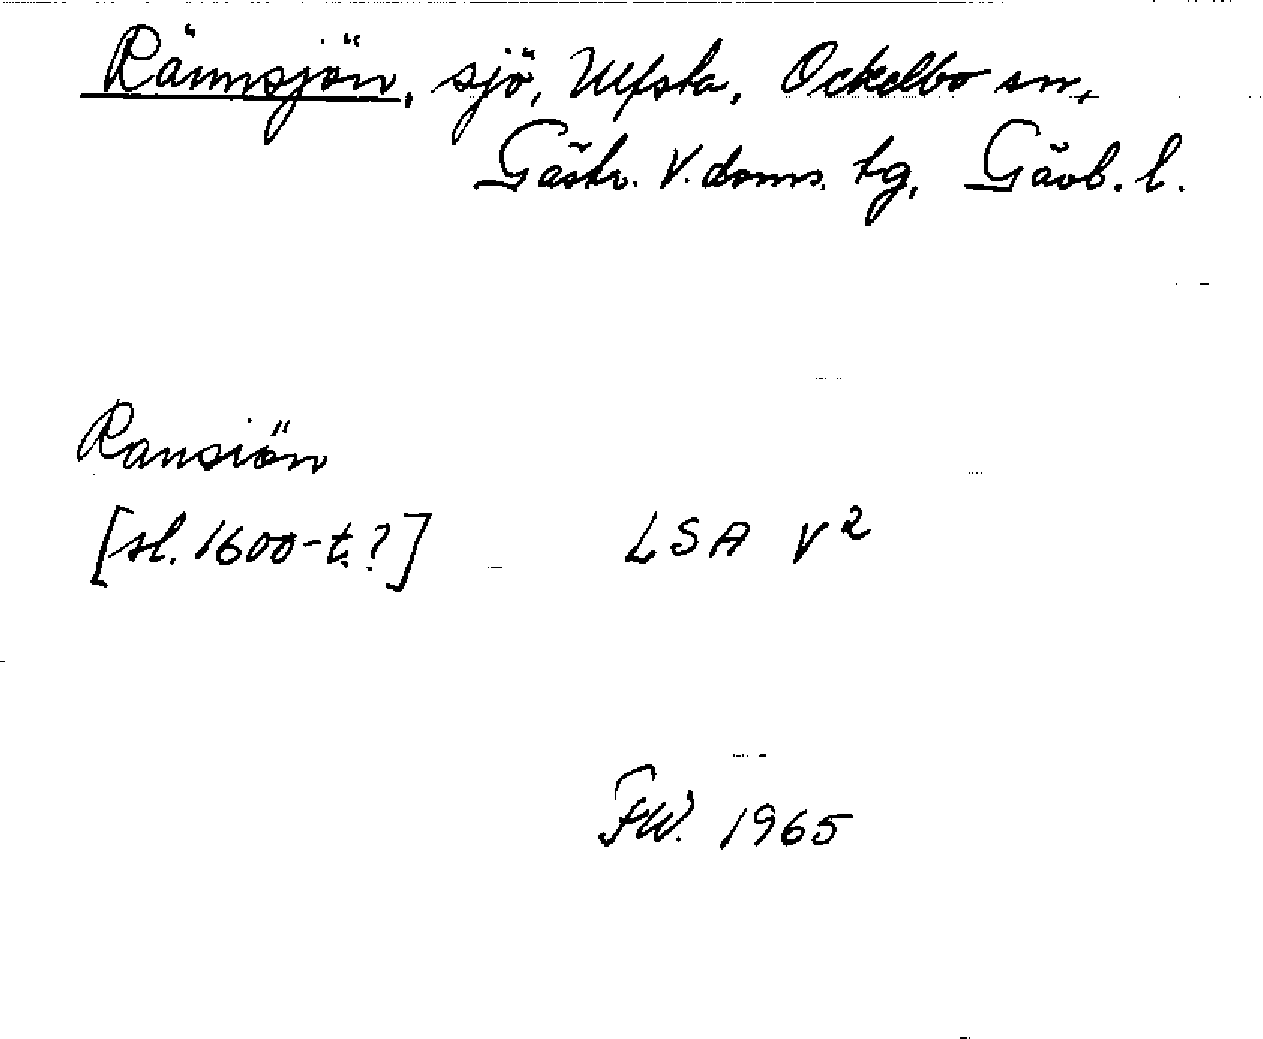 Rännsjön, sjö, Ulfsta, Ockelbo sn,
Gästr. V. doms. tg, Gävb. l.
Ransiön
[sl. 1600-t.?] LSA V²
FW. 1965